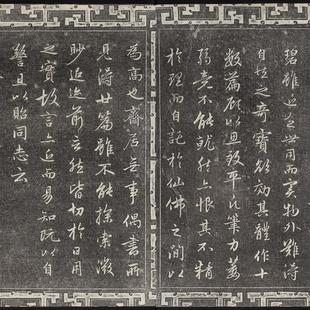 碧雖近乏世用而實物外難得
自然之奇寶欲効其體作十
數篇顧以思致平凡筆力萎
弱竟不能就然亦恨其不精
於理而自託於仙佛之間以
為高也齋居無事偶書所
見得廿篇雖不能探索微
眇追迹前言然皆切於日用
之實故言亦近而易知既以自
警且以貽同志云